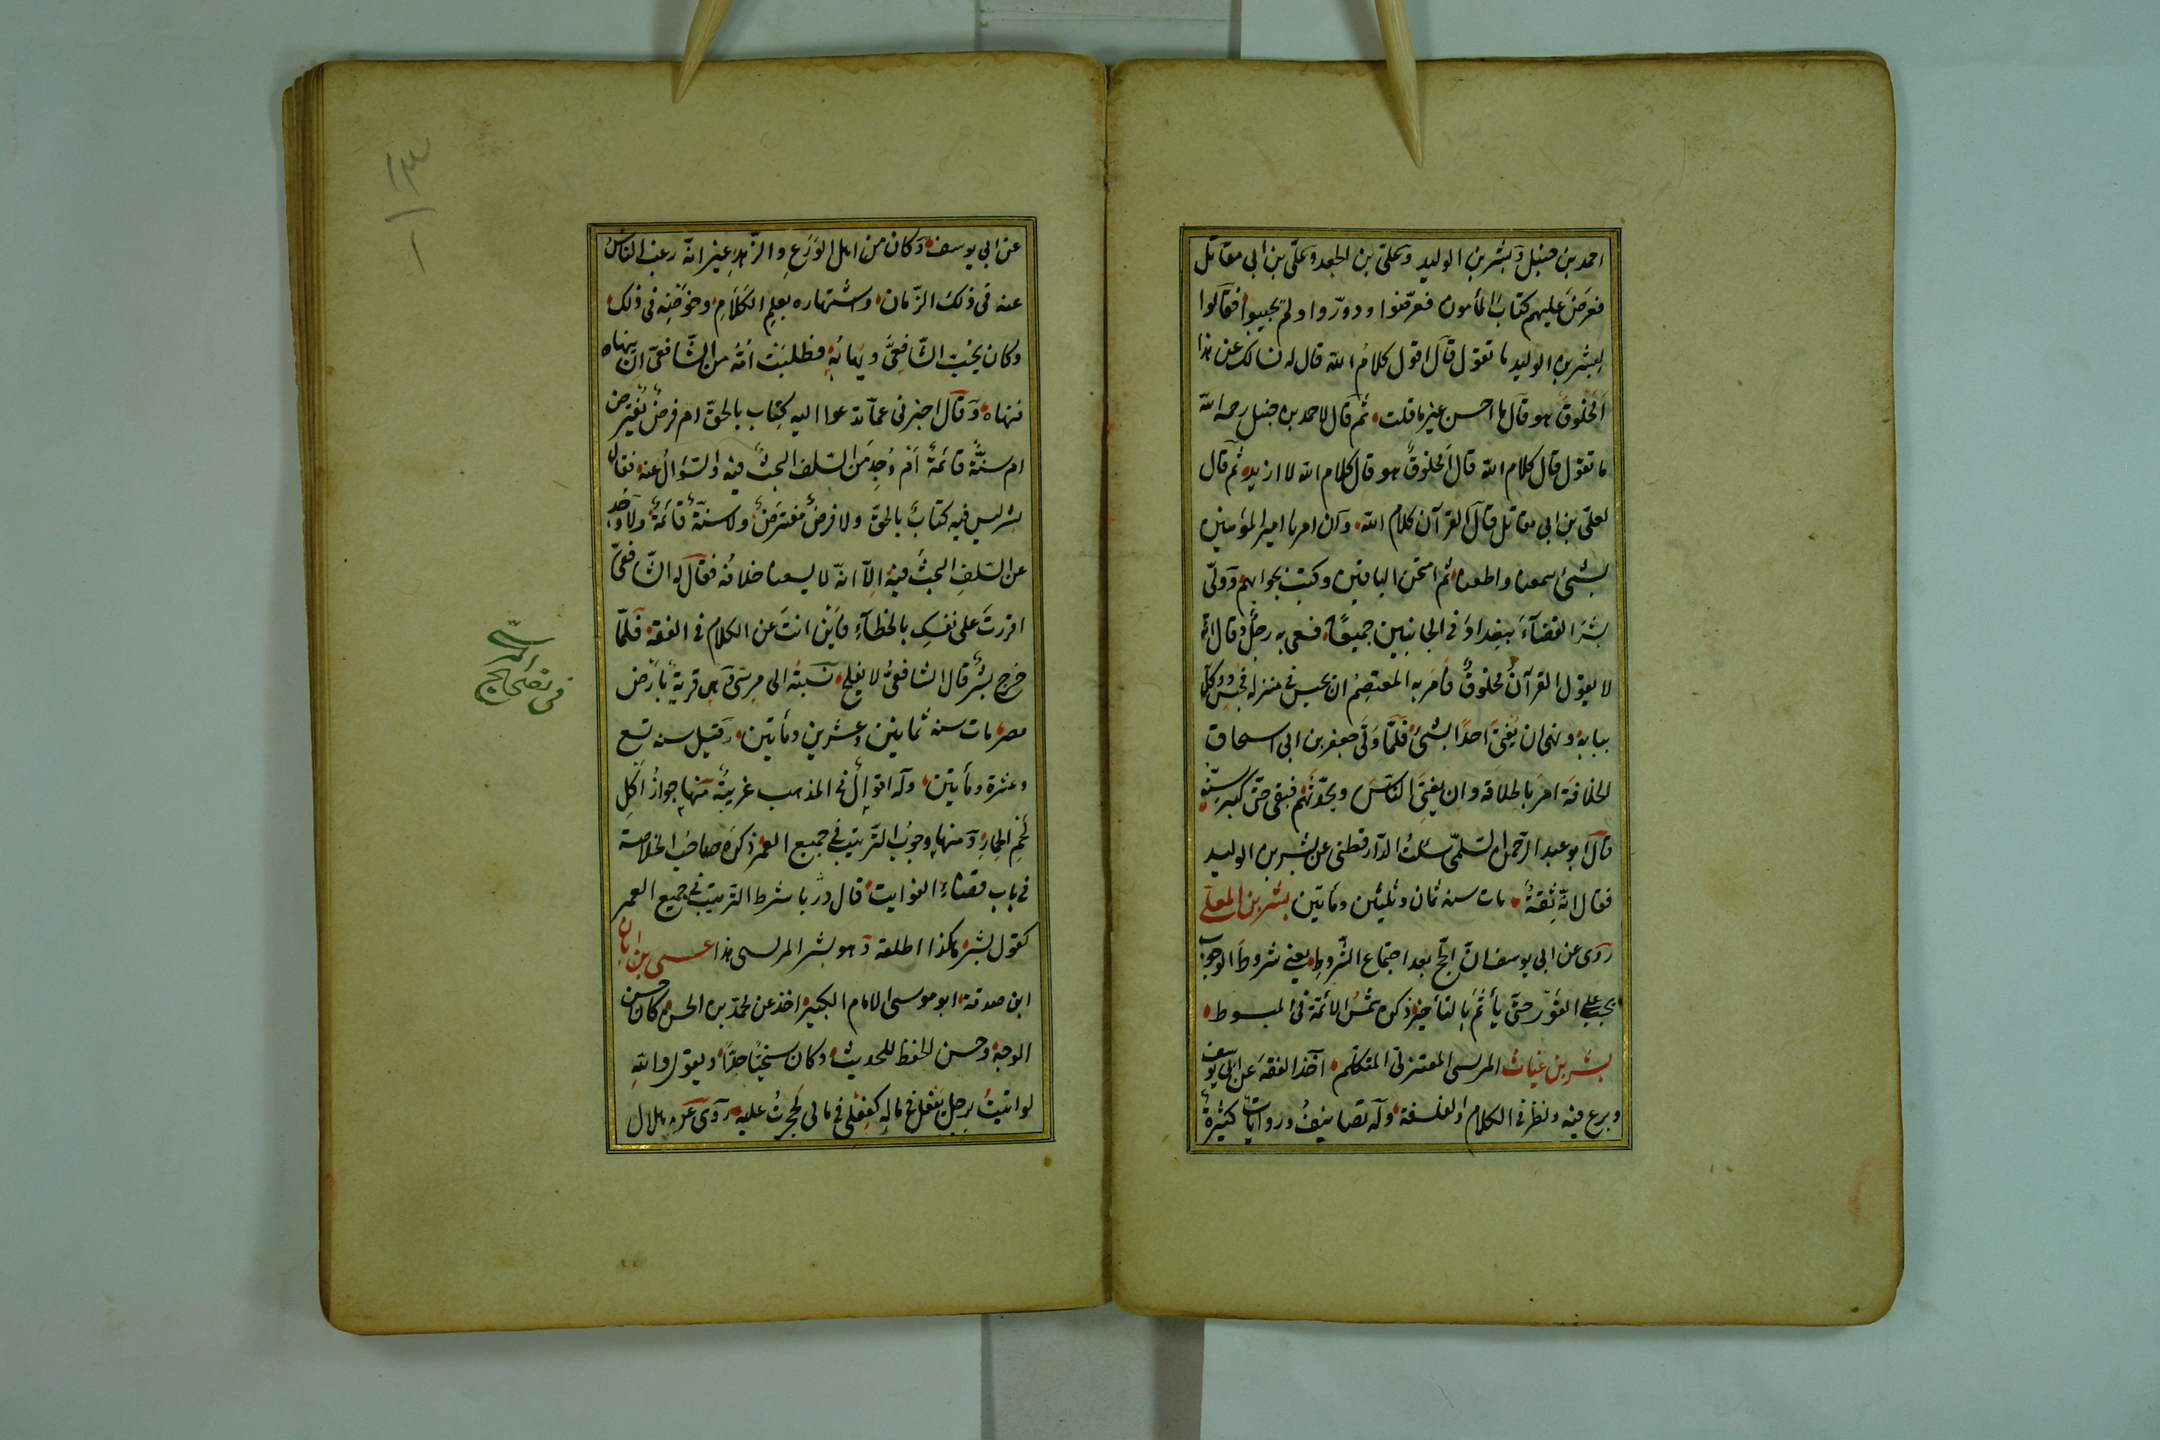 احمد بن حنبل وبشر بن الوليد وعلى بن الجعد وعلى بن ابى مقاتل
فعرض عليهم كتاب المأمون فعرّضوا وورّوا ولم يجيبوا فقالوا
لبشر بن الوليد ما تقول قال اقول كلام الله قال لم نسالك عن هذا
أمخلوق هو قال ما احسن غير ما قلت ثم قال لاحمد بن حنبل رحمه الله
ما تقول قال كلام الله قال أمخلوق هو قال كلام الله لا ازيد ثم قال
لعلى بن ابى مقاتل قال القرآن كلام الله وان امرنا امير المؤمنين
بشئ سمعنا واطعنا ثم امتحن الباقين وكتب بجوابهم وولّى
بشر القضآء ببغداد فى الجانبين جميعًا فسعى به رجل وقال انه
لا يقول القرآن مخلوق فأمر به المعتصم ان يحبس فى منزله فحبس ووكل
ببابه ونهى ان يفتى احدًا بشئ فلمّا ولّى جعفر بن ابى اسحاق
الخلافة امر باطلاقه وان يفتى الناس ويحدّثهم فبقى حتى كبر سنّه
قال ابو عبد الرحمن السلمى سئلت الدّارقطنى عن بشر بن الوليد
فقال انّه ثقة مات سنة ثمان وثلثين ومأتين بشر بن المعلّى
روى عن ابى يوسف انّ الحج بعد اجتماع الشروط يعنى شروط الوجوب
يجب على الفور حتى يأثم بالتأخير ذكره شمس الائمّة فى المبسوط
بشر بن غياث المريسى المعتزلى المتكلم اخذ الفقه عن ابى يوسف
وبرع فيه ونظر فى الكلام والفلسفة وله تصانيف وروايات كثيرة
عن ابى يوسف وكان من اهل الورع والزّهد غير انّه رغب الناس
عنه فى ذلك الزّمان واشتهاره بعلم الكلام وخوضه فى ذلك
وكان يحب الشّافعىّ ويهابه فطلبت امّه من الشّافعى ان ينهاه
فنهاه وقال اخبرنى عمّا تدعوا اليه كتاب بالحقّ ام فرض مفترض
ام سنّة قائمة أم وُجد من السّلف البحث فيه والسّؤال عنه فقال
بشر ليس فيه كتاب بالحقّ ولا فرض مفترض ولا سنّة قائمة ولا وُجد
عن السّلف البحث فيه إلّا انّه لا يسعنا خلافه فقال له الشّافعىّ
اقررت على نفسك بالخطآء فأين انت عن الكلام فى الفقه فلمّا
خرج بشر قال الشافعى لا يفلح نسبته الى مريس وهى قرية بأرض
مصر مات سنة ثمانين وعشرين ومأتين وقيل سنة تسع
وعشرة ومأتين وله اقوال فى المذهب غريبة منها جواز اكل
لحم الحمار ومنها وجوب الترتيب فى جميع العمر ذكره صاحب الخلاصة
فى باب قضاء الفوايت قال وربّما شرط الترتيب فى جميع العمر
كقول بشر هكذا اطلقه وهو بشر المريسى هذا عيسى بن ابان
ابن صدقة ابو موسى الامام الكبير اخذ عن محمّد بن الحسن كان حسن
الوجه وحسن الحفظ للحديث وكان سخيًّا جدًّا ويقول والله
لو اتيت برجل يفعل فى ماله كفعلى فى مالى لحجرت عليه روى عنه هلال